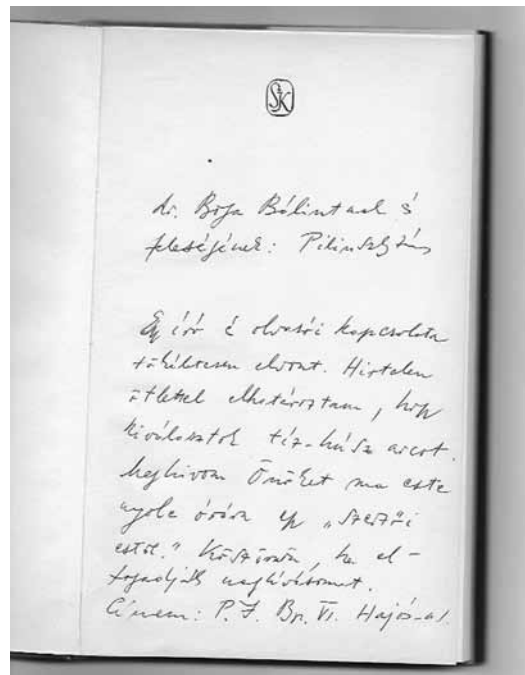 SK
dr. Boja Bálintnak s
feleségének: Pilinszky János
Egy író é olvasói kapcsolata
tökéletesen elvont. Hirtelen
ötlettel elhatároztam, hogy
kiválasztok tíz-húsz arcot.
Meghívom Önöket ma este
nyolc órára egy „szerzői
estre." Köszönöm, ha el-
fogadják meghívásomat.
Címem: P. J. Bp. VI. Hajós-u 1.